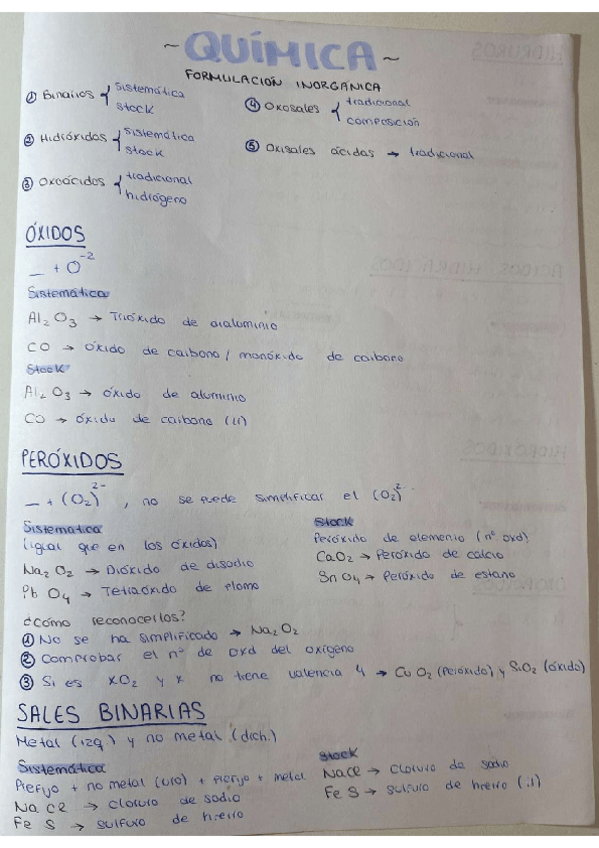 ~ QUÍMICA ~
FORMULACIÓN INORGÁNICA
① Binarios { sistemática
stock
④ Oxosales { tradicional
composición
② Hidróxidos { sistemática
stock
⑤ Oxisales ácidas → tradicional
③ Oxoácidos { tradicional
hidrógeno
ÓXIDOS
_ + O⁻²
Sistemática
Al₂O₃ → Trióxido de dialuminio
CO → óxido de carbono / monóxido de carbono
Stock
Al₂O₃ → óxido de aluminio
CO → óxido de carbono (II)
PERÓXIDOS
_ + (O₂)²⁻, no se puede simplificar el (O₂)²⁻
Sistemática
(igual que en los óxidos)
Na₂O₂ → Dióxido de disodio
Pb O₄ → Tetraóxido de plomo
Stock
Peróxido de elemento (nº oxd)
CaO₂ → Peróxido de calcio
SnO₄ → Peróxido de estaño
¿cómo reconocerlos?
① No se ha simplificado → Na₂O₂
② Comprobar el nº de oxd del oxígeno
③ Si es XO₂ y x no tiene valencia 4 → CuO₂ (Peróxido) y SiO₂ (óxido)
SALES BINARIAS
Metal (izq.) y no metal (dch.)
Sistemática
Prefijo + no metal (uro) + prefijo + metal
NaCl → cloruro de sodio
Fe S → sulfuro de hierro
Stock
NaCl → cloruro de sodio
Fe S → sulfuro de hierro (II)